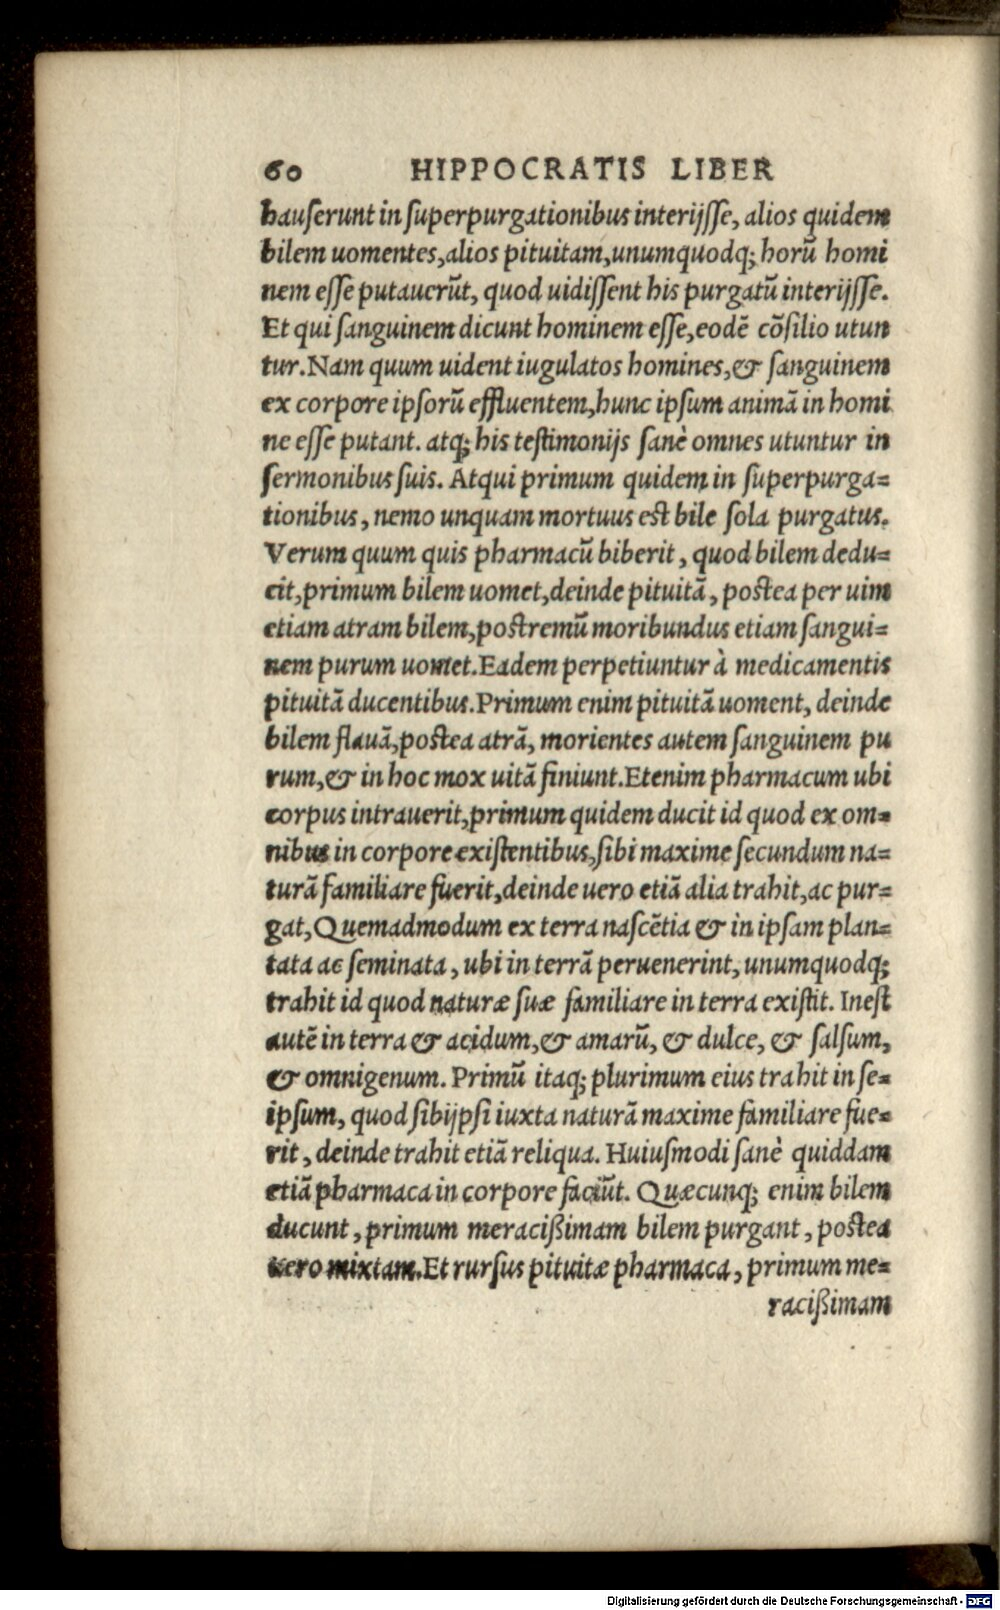 60 HIPPOCRATIS LIBER
hauſerunt in ſuperpurgationibus interijſſe, alios quidem
bilem uomentes, alios pituitam, unumquodq; horū homi
nem eſſe putauerūt, quod uidiſſent his purgatū interijſſe.
Et qui ſanguinem dicunt hominem eſſe, eodē cōſilio utun
tur. Nam quum uident iugulatos homines, & ſanguinem
ex corpore ipſorū effluentem, hunc ipſum animā in homi
ne eſſe putant. atq; his teſtimonijs ſanè omnes utuntur in
ſermonibus ſuis. Atqui primum quidem in ſuperpurga=
tionibus, nemo unquam mortuus eſt bile ſola purgatus.
Verum quum quis pharmacū biberit, quod bilem dedu=
cit, primum bilem uomet, deinde pituitā, poſtea per uim
etiam atram bilem, poſtremū moribundus etiam ſangui=
nem purum uomet. Eadem perpetiuntur à medicamentis
pituitā ducentibus. Primum enim pituitā uoment, deinde
bilem flauā, poſtea atrā, morientes autem ſanguinem pu
rum, & in hoc mox uitā finiunt. Etenim pharmacum ubi
corpus intrauerit, primum quidem ducit id quod ex om=
nibus in corpore exiſtentibus, ſibi maxime ſecundum na=
turā familiare fuerit, deinde uero etiā alia trahit, ac pur=
gat, Quemadmodum ex terra naſcētia & in ipſam plan=
tata ac ſeminata, ubi in terrā peruenerint, unumquodq;
trahit id quod naturæ ſuæ familiare in terra exiſtit. Ineſt
autē in terra & acidum, & amarū, & dulce, & ſalſum,
& omnigenum. Primū itaq; plurimum eius trahit in ſe=
ipſum, quod ſibijpſi iuxta naturā maxime familiare fue=
rit, deinde trahit etiā reliqua. Huiuſmodi ſanè quiddam
etiā pharmaca in corpore faciūt. Quæcunq; enim bilem
ducunt, primum meracißimam bilem purgant, poſtea
uero mixtam. Et rurſus pituitæ pharmaca, primum me=
racißimam
Digitalisierung gefördert durch die Deutsche Forschungsgemeinschaft - DFG